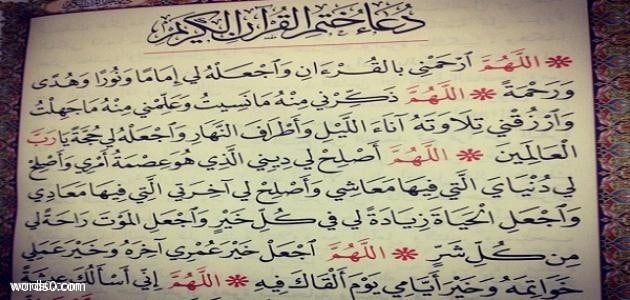 دُعَاءُ خَتْمِ القُرْآنِ الكَرِيمِ
❋ اللَّهُمَّ ٱرْحَمْنِي بالقُرْءَانِ وَٱجْعَلهُ لِي إِمَامًا وَنُورًا وَهُدًى
وَرَحْمَةً ❋ اللَّهُمَّ ذَكِّرْنِي مِنْهُ مَا نَسِيتُ وَعَلِّمْنِي مِنْهُ مَا جَهِلْتُ
وَٱرْزُقْنِي تِلَاوَتَهُ آنَاءَ اللَّيْلِ وَأَطْرَافَ النَّهَارِ وَٱجْعَلْهُ لِي حُجَّةً يَا رَبَّ
الْعَالَمِينَ ❋ اللَّهُمَّ أَصْلِحْ لِي دِينِي الَّذِي هُوَ عِصْمَةُ أَمْرِي وَأَصْلِحْ
لِي دُنْيَايَ الَّتِي فِيهَا مَعَاشِي وَأَصْلِحْ لِي آخِرَتِي الَّتِي فِيهَا مَعَادِي
وَٱجْعَلِ الْحَيَاةَ زِيَادَةً لِي فِي كُلِّ خَيْرٍ وَٱجْعَلِ الْمَوْتَ رَاحَةً لِي
مِن كُلِّ شَرٍّ ❋ اللَّهُمَّ ٱجْعَلْ خَيْرَ عُمْرِي آخِرَهُ وَخَيْرَ عَمَلِي
خَوَاتِمَهُ وَخَيْرَ أَيَّامِي يَوْمَ أَلْقَاكَ فِيهِ ❋ اللَّهُمَّ إِنِّي أَسْأَلُكَ عِيشَةً
words0.com